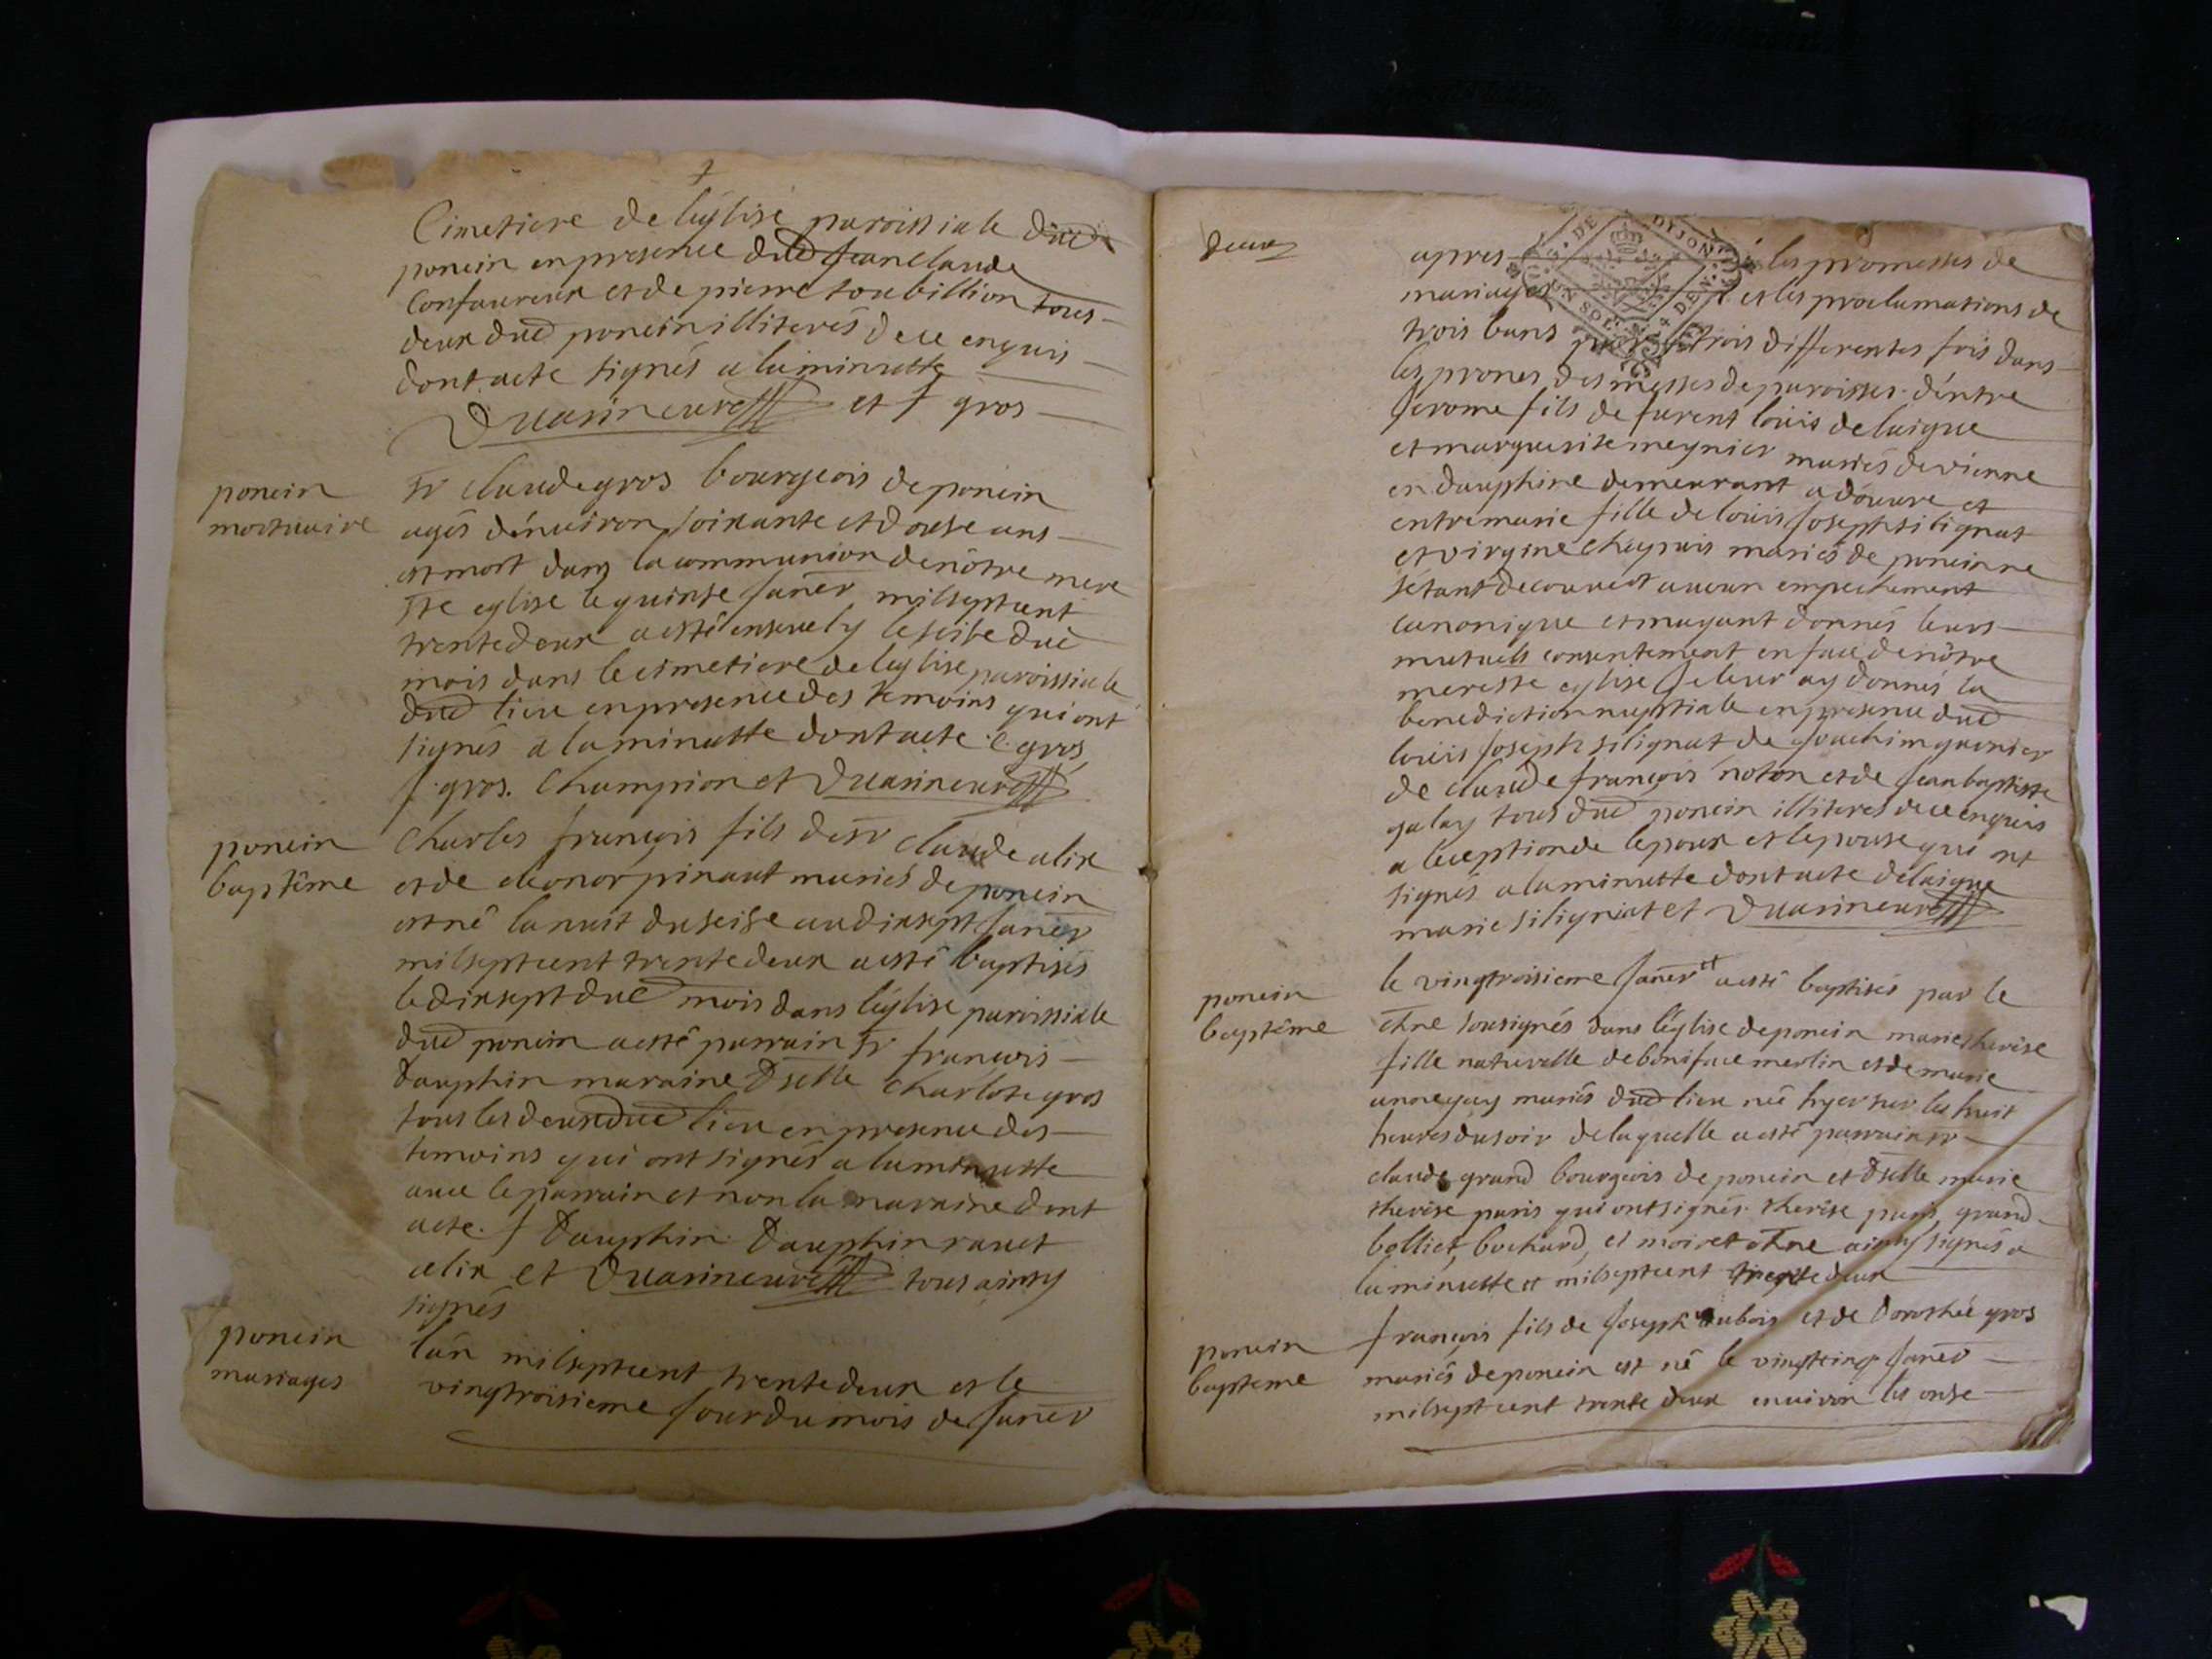 Cimetiere de léglise paroissiale dud
poncin en presence dud Jean Claude
Confavreux et de pierre toubillion tous
deux dud poncin illiterés de ce enquis
dont acte signés a la minutte
et f gros
poncin
mortuaire
Sr claude gros bourgeois de poncin
agés dénuiron soixante et douse ans
est mort dans la communion de nôtre mere
Ste eglise le quinse janer milseptcent
trente deux a esté enseuely le seise dud
mois dans le cimetiere de leglise paroissiale
dud lieu en presence des temoins qui ont
signés a la minutte dont acte. C. gros
f. gros. Champion et
poncin
baptême
Charles françois fils de Sr claude alix
et de eleonor pinaut mariés de poncin
est né la nuit du seise au dixsept janer
milseptcent trente deux a esté baptisés
le dixsept dud mois dans léglise paroissiale
dud poncin a esté parrain Sr françois
Dauphin maraine Dselle Charlote gros
tous les deux dud lieu en presence des
temoins qui ont signés a la minutte
avec le parrain et non la maraine dont
acte. f Dauphin. Dauphin
alix et tous ainsy
signés
poncin
mariages
lán milseptcent trente deux et le
vingtroisieme jour du mois de janer
deux
DE DIJON
SOL 4 DEN
apres les promesses de
mariages et les proclamations de
trois bans trois differentes fois dans
les prones des messes de paroisses déntre
Jerome fils de furent loüis delaigue
et marguerite meynier mariés de vienne
en dauphine demeurant a et
entre marie fille de loüis Joseph silignat
et virgine chapuis mariés de poncin ne
sétant decouuert aucun empechement
canonique et mayant donnés leurs
mutuels consentement en face de nôtre
mere ste eglise je leur ay donnés la
benediction nuptiale en presence dud
loüis Joseph silignat de Joachim garnier
de claude françois noton et de Jean baptiste
galay tous dud poncin illiteres de ce enquis
a léception de lepoux et lepouse qui ont
signés a la minutte dont acte delaigue
marie silignat et
poncin
baptême
le vingtroisieme janer a esté baptisés par le
sousignés dans léglise de poncin marie therèse
fille naturelle de boniface merlin et de marie
anne gay mariés dud lieu née hyer sur les huit
heures du soir de laquelle a esté parrain sr
claude grand bourgeois de poncin et Dselle marie
therèse paris qui ont signés. therèse paris, grand
bolliet, bochard, et moiret ainsy signés a
la minutte milseptcent trente deux
poncin
bapteme
françois fils de Joseph dubois et de Dorothée gros
mariés de poncin est né le vingtcinq janer
milseptcent trente deux enuiron les onse